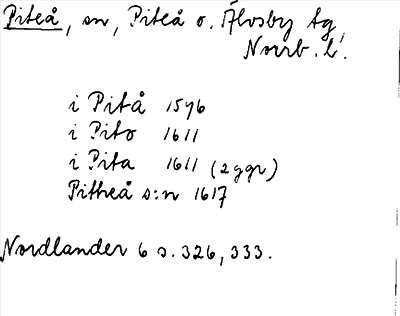 Piteå, sn, Piteå o. Älvsby tg,
Norrb. l.
i Pitå 1596
i Pito 1611
i Pita 1611 (2 ggr)
Pitheå s:n 1617
Nordlander 6 s. 326, 333.